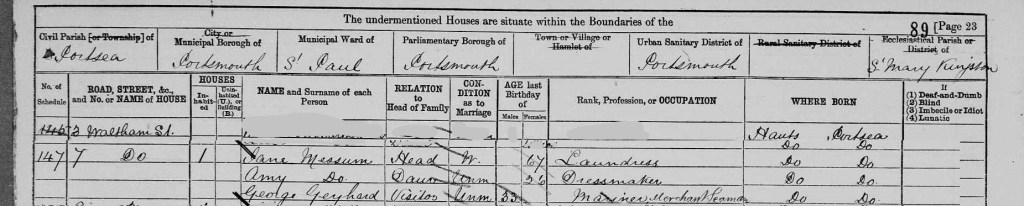 The undermentioned Houses are situate within the Boundaries of the
89 [Page 23
Civil Parish [or Township] of
Portsea
City or Municipal Borough of
Portsmouth
Municipal Ward of
St Paul
Parliamentary Borough of
Portsmouth
Town or Village or Hamlet of
Urban Sanitary District of
Portsmouth
Rural Sanitary District of
Ecclesiastical Parish or District of
St Mary Kingston
No. of Schedule
ROAD, STREET, &c., and No. or NAME of HOUSE
HOUSES
Inhabited
Uninhabited (U.), or Building (B.)
NAME and Surname of each Person
RELATION to Head of Family
CONDITION as to Marriage
AGE last Birthday of
Males
Females
Rank, Profession, or OCCUPATION
WHERE BORN
If
(1) Deaf-and-Dumb
(2) Blind
(3) Imbecile or Idiot
(4) Lunatic
146 3 Waltham St. Hants Portsea
Do Do
147 7 Do 1 Jane Messum Head W. 67 Laundress Do Do
Amy Do Daur Unm 26 Dressmaker Do Do
George Geyhard Visitor Unm 33 Mariner Merchant Seaman Do Do